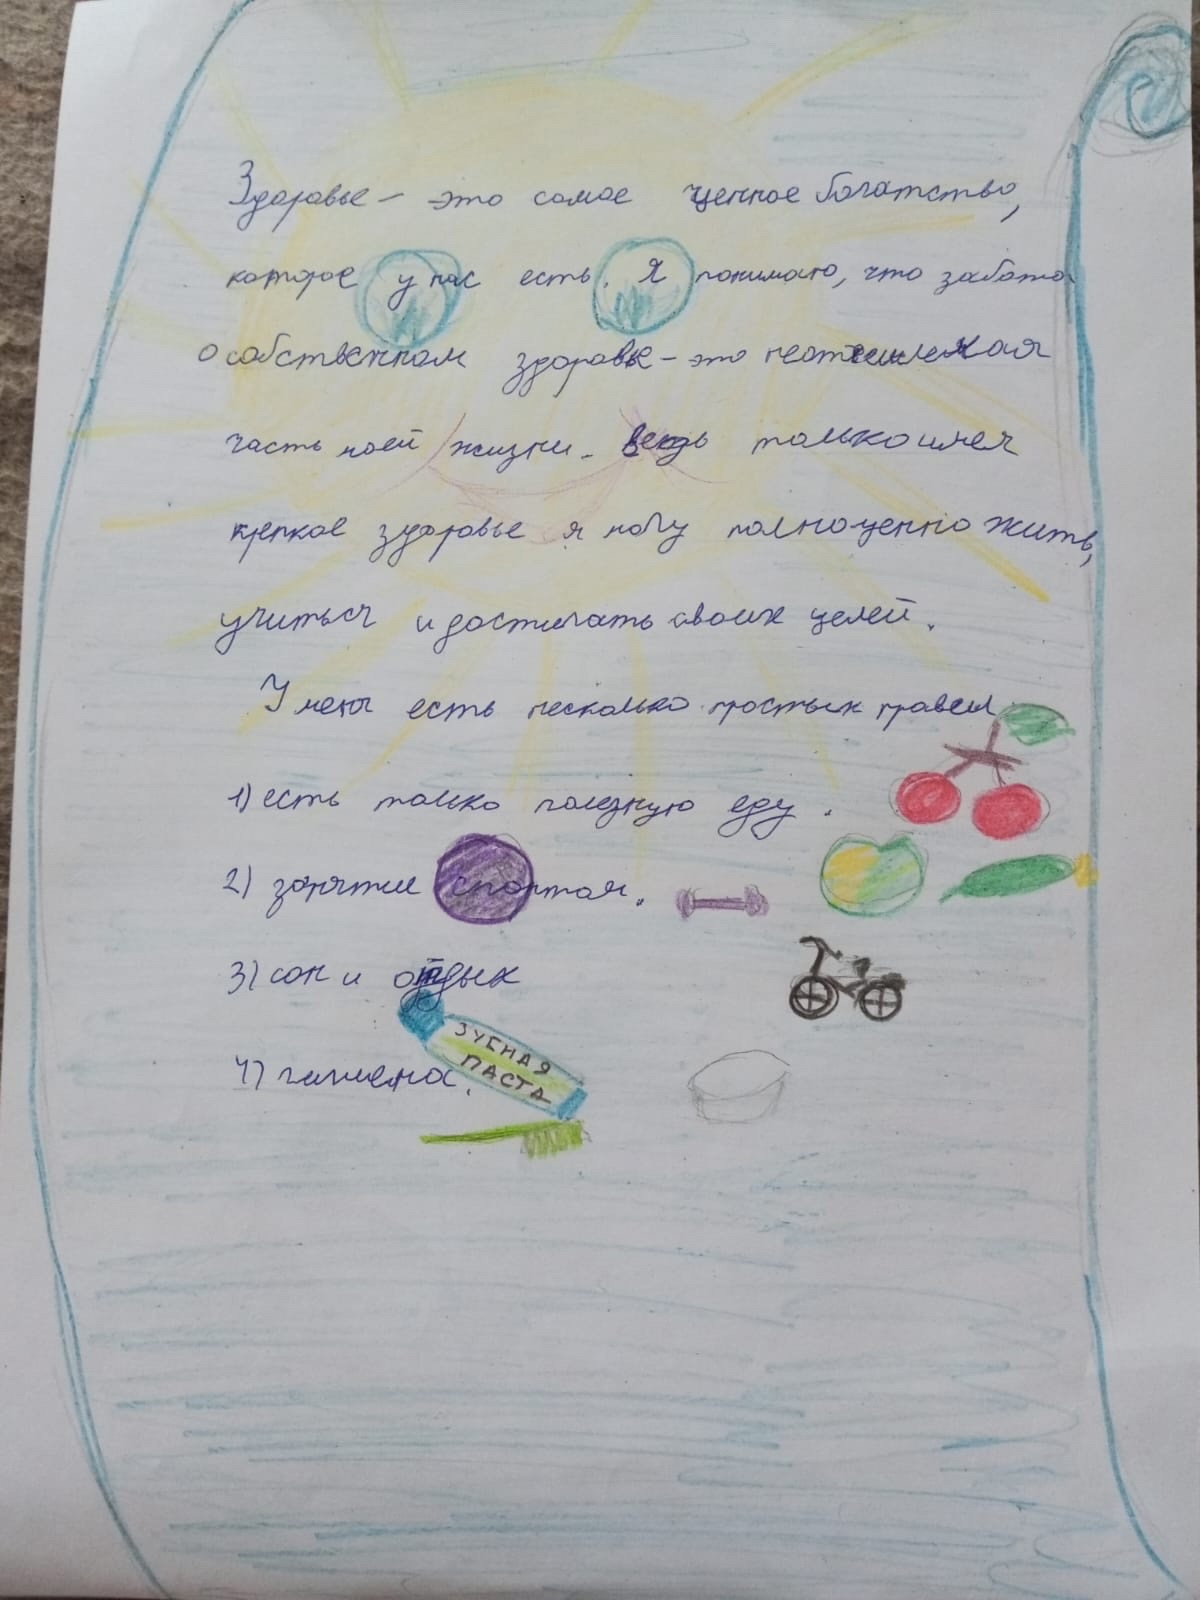 Здоровье – это самое ценное богатство,
которое у нас есть. Я понимаю, что забота
о собственном здоровье – это неотъемлемая
часть моей жизни. Ведь только имея
крепкое здоровье я могу полноценно жить,
учиться и достигать своих целей.
У меня есть несколько простых правил
1) есть только полезную еду.
2) занятие спортом.
3) сон и отдых
ЗУБНАЯ
ПАСТА
4) гигиена.